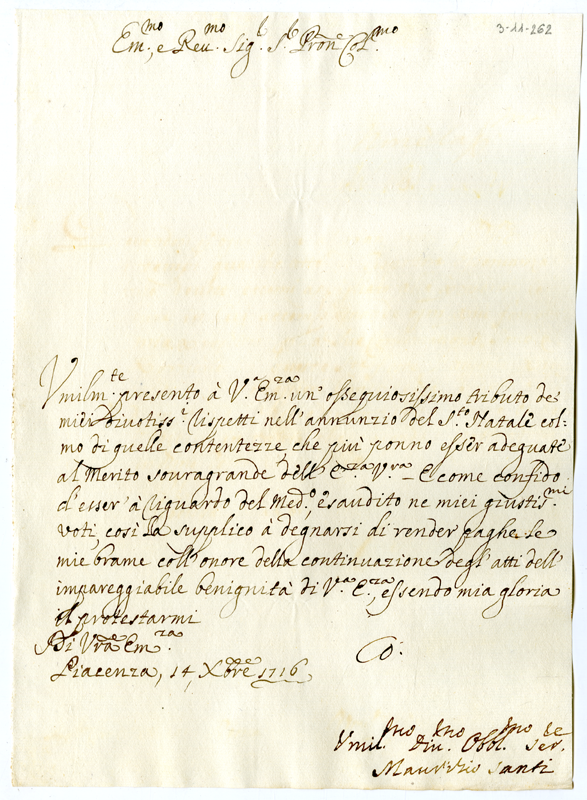 3-11-262
Em.mo, e Reu.mo Sig.r S.r Pròne Col.mo
Vmilm.te presento à V.a Em.za un'ossequiosissimo tributo de
miei diuotiss.i rispetti nell'annunzio del S.to Natale col=
mo di quelle contentezze, che più ponno esser adeguate
al Merito souragrande dell'E.za V.ra E come confido
d'esser à riguardo del Med.o esaudito ne miei giustis.mi
voti, così la supplico à degnarsi di render paghe le
mie brame coll'onore della continuazione degl'atti dell'
impareggiabile benignità di V.a E.za, essendo mia gloria
il protestarmi
Di V.ra Em.za
Piacenza, 14, Xbre 1716
Vmil.mo Diu.mo Obbl.mo Ser.de
Maurizio Santi